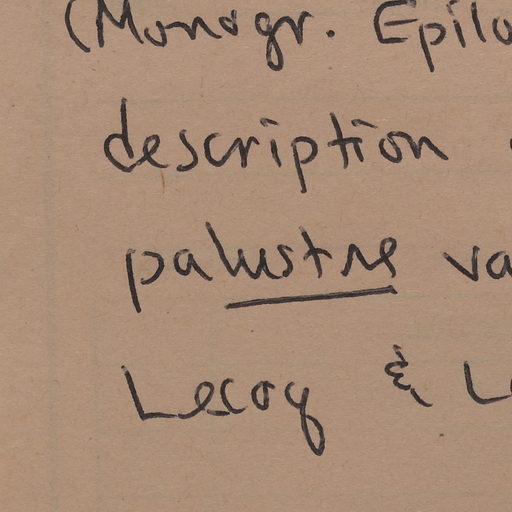 (Monogr. Epilo
description
palustre va
Lecoq & L